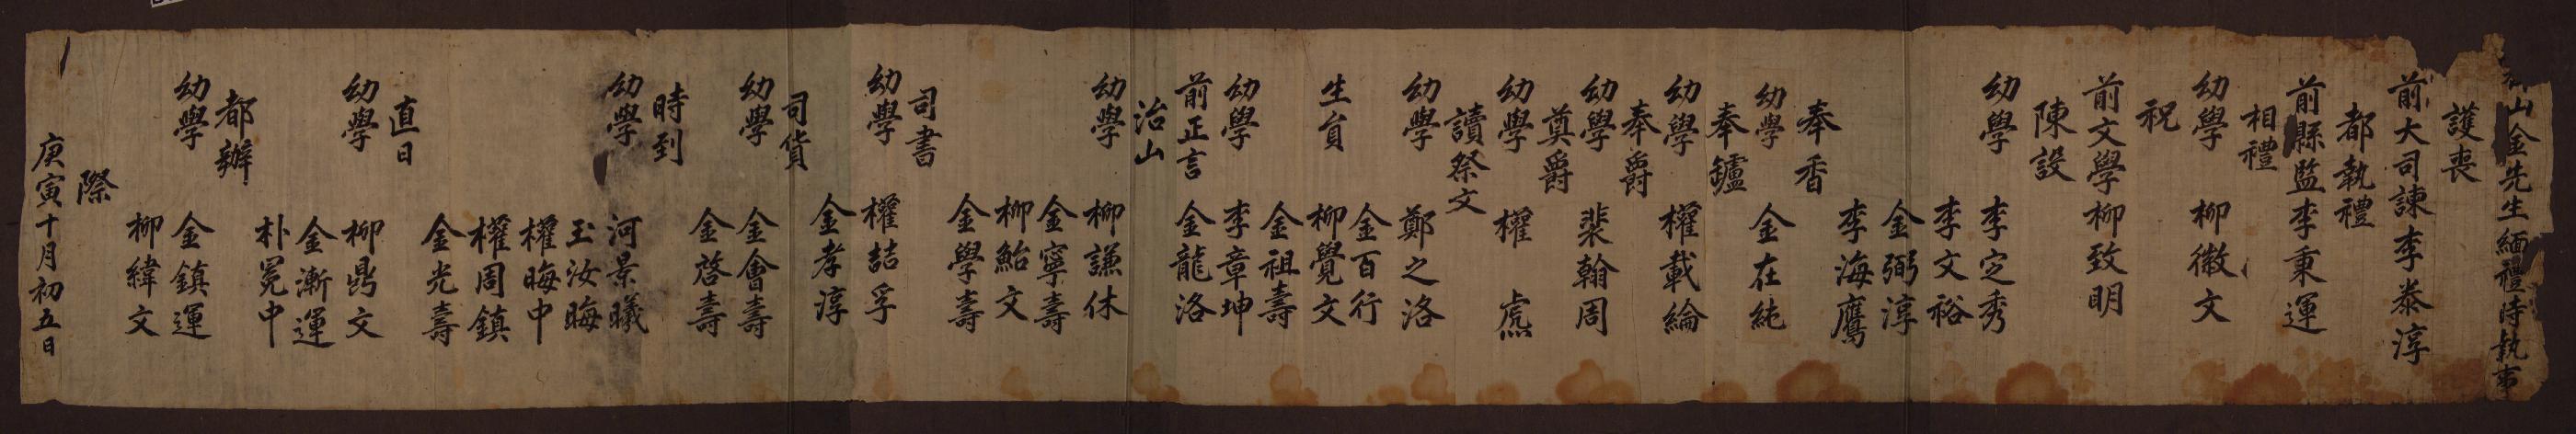 山金先生緬禮時執事
護喪
前大司諫李泰淳
都執禮
前縣監李秉運
相禮
幼學 柳徽文
祝
前文學柳致明
陳設
幼學 李定秀
李文裕
金弼淳
李海鷹
奉香
幼學 金在純
奉鑪
幼學 權載綸
奉爵
幼學 裴翰周
奠爵
幼學 權虎
讀祭文
幼學 鄭之洛
金百行
生員 柳覺文
金祖壽
幼學 李章坤
前正言 金龍洛
治山
幼學 柳謙休
金寧壽
柳鮐文
金學壽
司書
幼學 權喆孚
金孝淳
司貨
幼學 金會壽
金啓壽
時到
幼學 河景曦
玉汝晦
權晦中
權周鎮
金光壽
直日
幼學 柳鼎文
金漸運
朴冕中
都辦
幼學 金鎮運
柳緯文
際
庚寅十月初五日